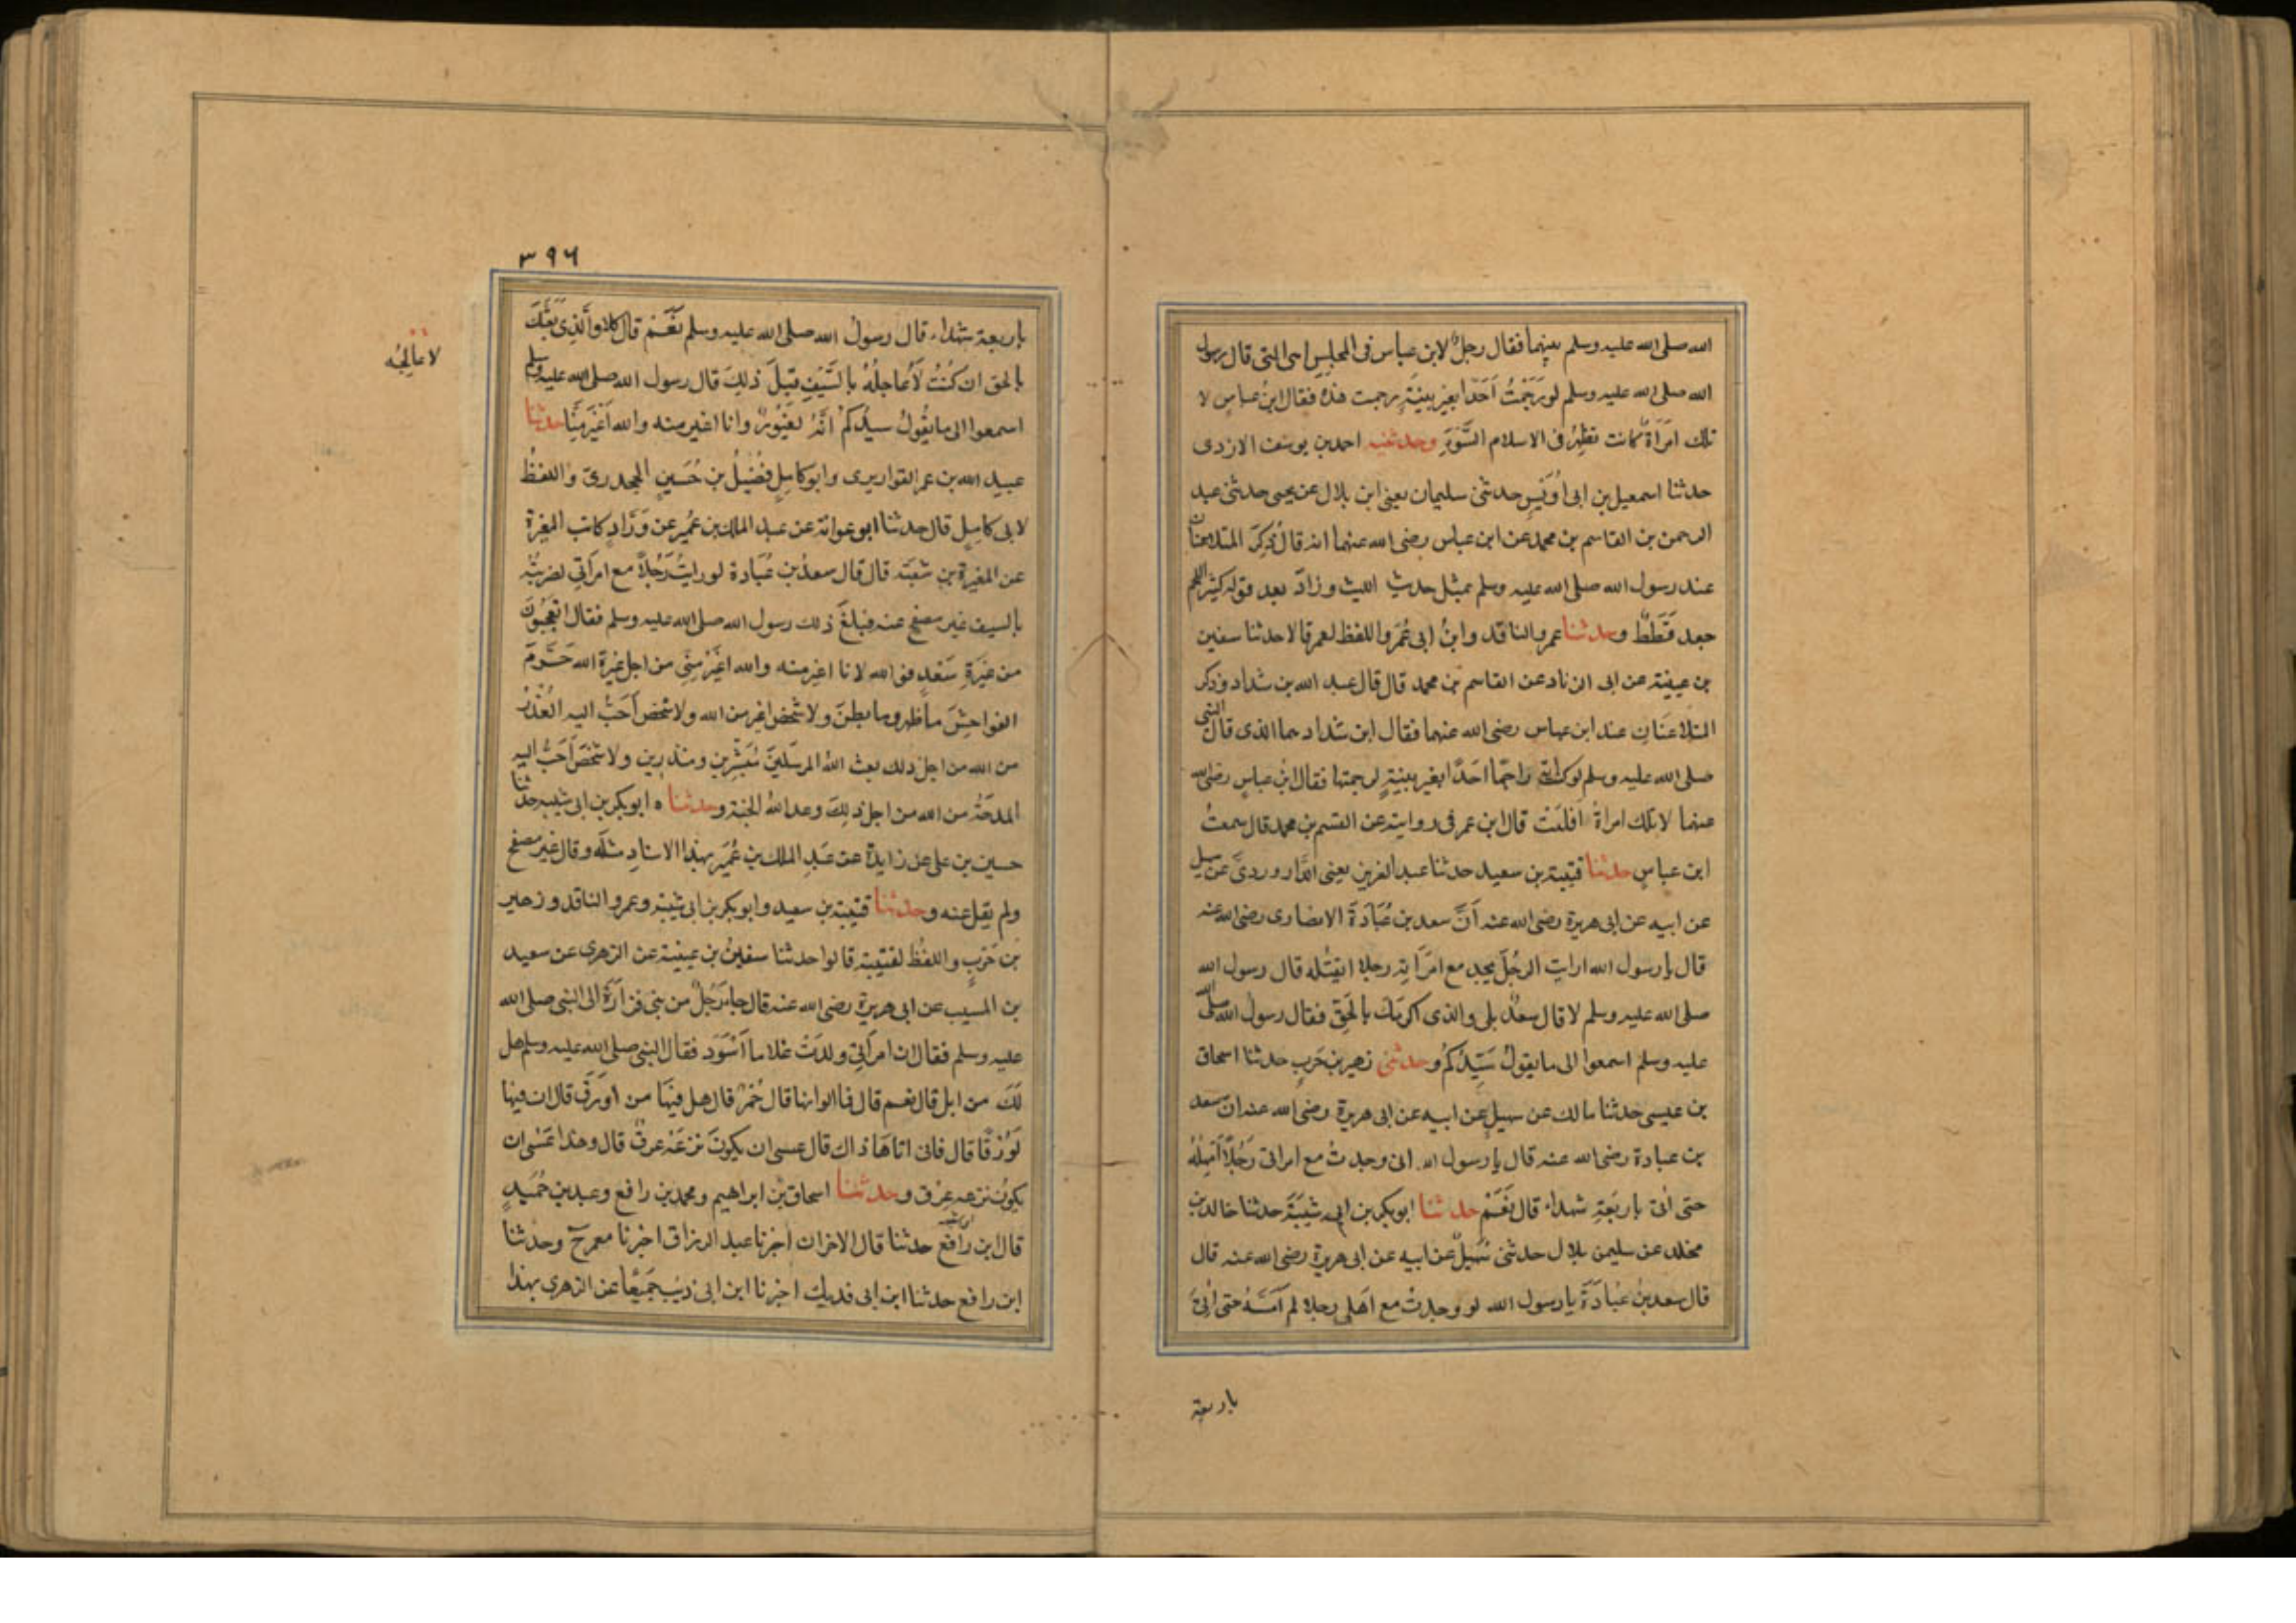 الله صلى الله عليه وسلم بينهما فقال رجل لابن عباس في المجلس اهى التى قال رسول
الله صلى الله عليه وسلم لو رجمت احدا بغير بينة رجمت هذه فقال ابن عباس لا
تلك امراة كانت تظهر فى الاسلام السوء وحدثنيه احمد بن يوسف الازدى
حدثنا اسمعيل بن ابى اويس حدثنى سليمان يعنى ابن بلال عن يحيى حدثنى عبد
الرحمن بن القاسم بن محمد عن ابن عباس رضى الله عنهما انه قال ذكر المتلاعنان
عند رسول الله صلى الله عليه وسلم بمثل حديث الليث وزاد بعد قوله كثير اللحم
جعد قططا وحدثنا عمرو الناقد وابن ابى عمر واللفظ لعمر قالا حدثنا سفين
بن عيينة عن ابى الزناد عن القاسم بن محمد قال قال عبد الله بن شداد وذكر
المتلاعنان عند ابن عباس رضى الله عنهما فقال ابن شداد هما الذى قال النبى
صلى الله عليه وسلم لو كنت راجما احدا بغير بينة لرجمتها فقال ابن عباس رضى الله
عنهما لا تلك امراة اعلنت قال ابن عمر فى روايته عن القسم بن محمد قال سمعت
ابن عباس حدثنا قتيبة بن سعيد حدثنا عبد العزيز يعنى الدراوردى عن سهيل
عن ابيه عن ابى هريرة رضى الله عنه أن سعد بن عبادة الانصارى رضى الله عنه
قال يا رسول الله ارايت الرجل يجد مع امراته رجلا ايقتله قال رسول الله
صلى الله عليه وسلم لا قال سعد بلى والذى اكرمك بالحق فقال رسول الله صلى الله
عليه وسلم اسمعوا الى ما يقول سيدكم وحدثنى زهير بن حرب حدثنا اسحاق
بن عيسى حدثنا مالك عن سهيل عن ابيه عن ابى هريرة رضى الله عنه ان سعد
بن عبادة رضى الله عنه قال يا رسول الله انى وجدت مع امراتى رجلا أمهله
حتى اتى باربعة شهداء قال نعم حدثنا ابو بكر بن ابى شيبة حدثنا خالد بن
مخلد عن سليمن بلال حدثنى سهيل عن ابيه عن ابى هريرة رضى الله عنه قال
قال سعد بن عبادة يا رسول الله لو وجدت مع اهلى رجلا لم امسه حتى اتى
باربعة
٣٩٦
باربعة شهداء قال رسول الله صلى الله عليه وسلم نعم قال كلا والذى بعثك
بالحق ان كنت لأعاجله بالسيف قبل ذلك قال رسول الله صلى الله عليه وسلم
اسمعوا الى ما يقول سيدكم انه لغيور وانا اغير منه والله أغير منا حدثنا
عبيد الله بن عمر القواريرى وابو كامل فضيل بن حسين الجحدرى واللفظ
لابى كامل قال حدثنا ابو عوانة عن عبد الملك بن عمير عن وراد كاتب المغيرة
عن المغيرة بن شعبة قال قال سعد بن عبادة لو رايت رجلا مع امراتى لضربته
بالسيف غير مصفح عنه فبلغ ذلك رسول الله صلى الله عليه وسلم فقال اتعجبون
من غيرة سعد فوالله لانا اغير منه والله اغير منى من اجل غيرة الله حرم
الفواحش ما ظهر وما بطن ولا شخص اغير من الله ولا شخص احب اليه العذر
من الله من اجل ذلك بعث الله المرسلين مبشرين ومنذرين ولا شخص احب اليه
المدحة من الله من اجل ذلك وعد الله الجنة وحدثناه ابو بكر بن ابى شيبه حدثنا
حسين بن على عن زايدة عن عبد الملك بن عمير بهذا الاسناد مثله وقال غير مصفح
ولم يقل عنه وحدثنا قتيبة بن سعيد وابو بكر بن ابى شيبة وعمرو الناقد وزهير
بن حرب واللفظ لقتيبة قالوا حدثنا سفين بن عيينة عن الزهرى عن سعيد
بن المسيب عن ابى هريرة رضى الله عنه قال جاء رجل من بنى فزارة الى النبى صلى الله
عليه وسلم فقال ان امراتى ولدت غلاما أسود فقال النبى صلى الله عليه وسلم هل
لك من ابل قال نعم قال فما الوانها قال حمر قال هل فيها من اورق قال ان فيها
لورقا قال فانى اتاها ذاك قال عسى ان يكون نزعه عرق قال وهذا عسى ان
يكون نزعه عرق وحدثنا اسحاق بن ابراهيم ومحمد بن رافع وعبد بن حميد
قال بن رافع حدثنا قال الاخران اخبرنا عبد الرزاق اخبرنا معمر ح وحدثنا
ابن رافع حدثنا ابن ابى فديك اخبرنا ابن ابى ذيب جميعا عن الزهرى بهذا